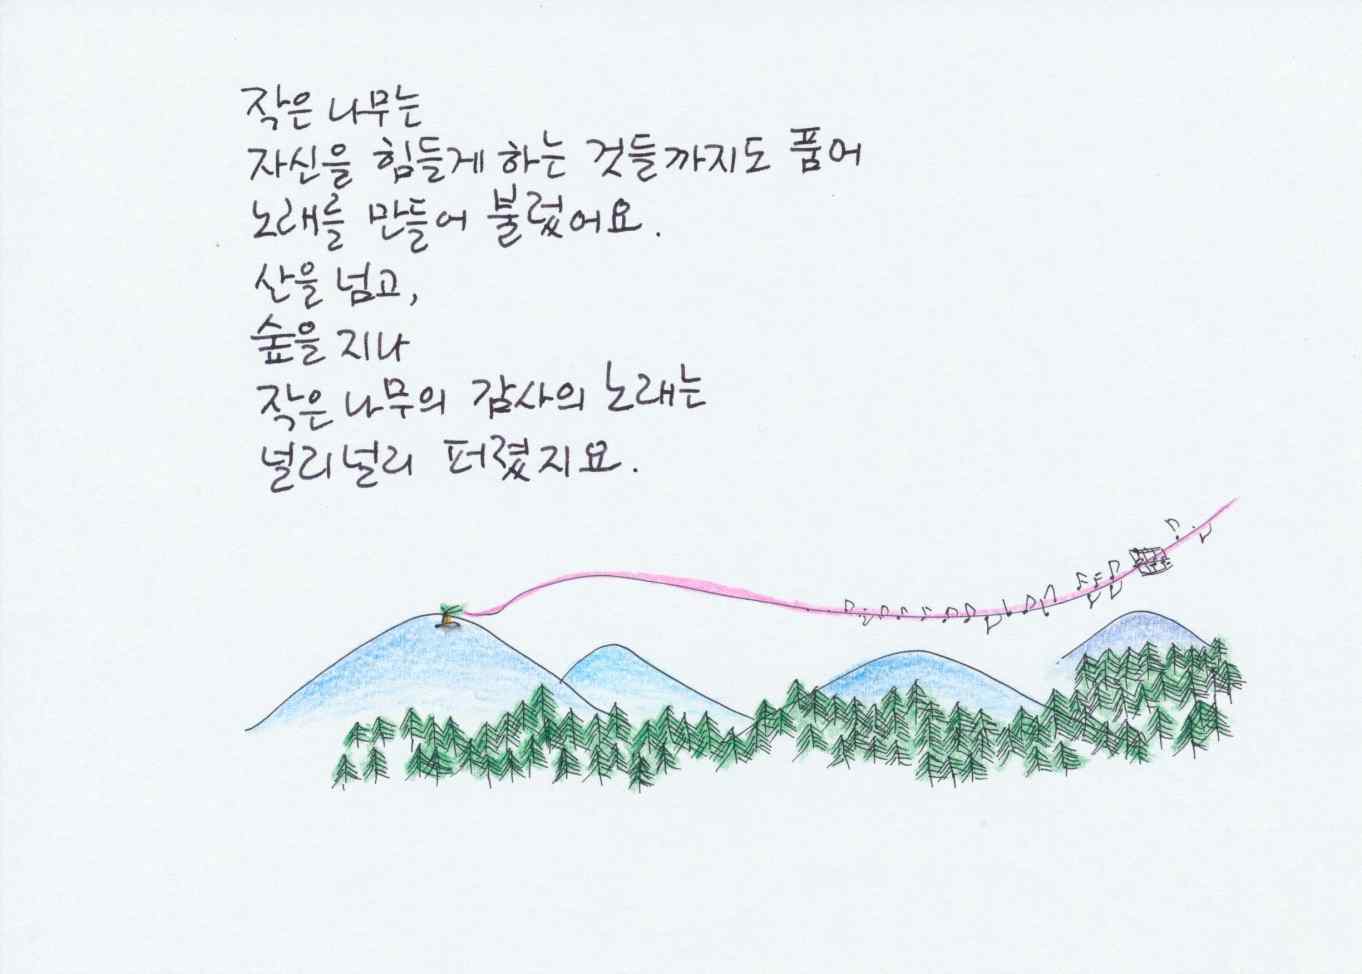 작은 나무는
자신을 힘들게 하는 것들까지도 품어
노래를 만들어 불렀어요.
산을 넘고,
숲을 지나
작은 나무의 감사의 노래는
널리널리 퍼졌지요.